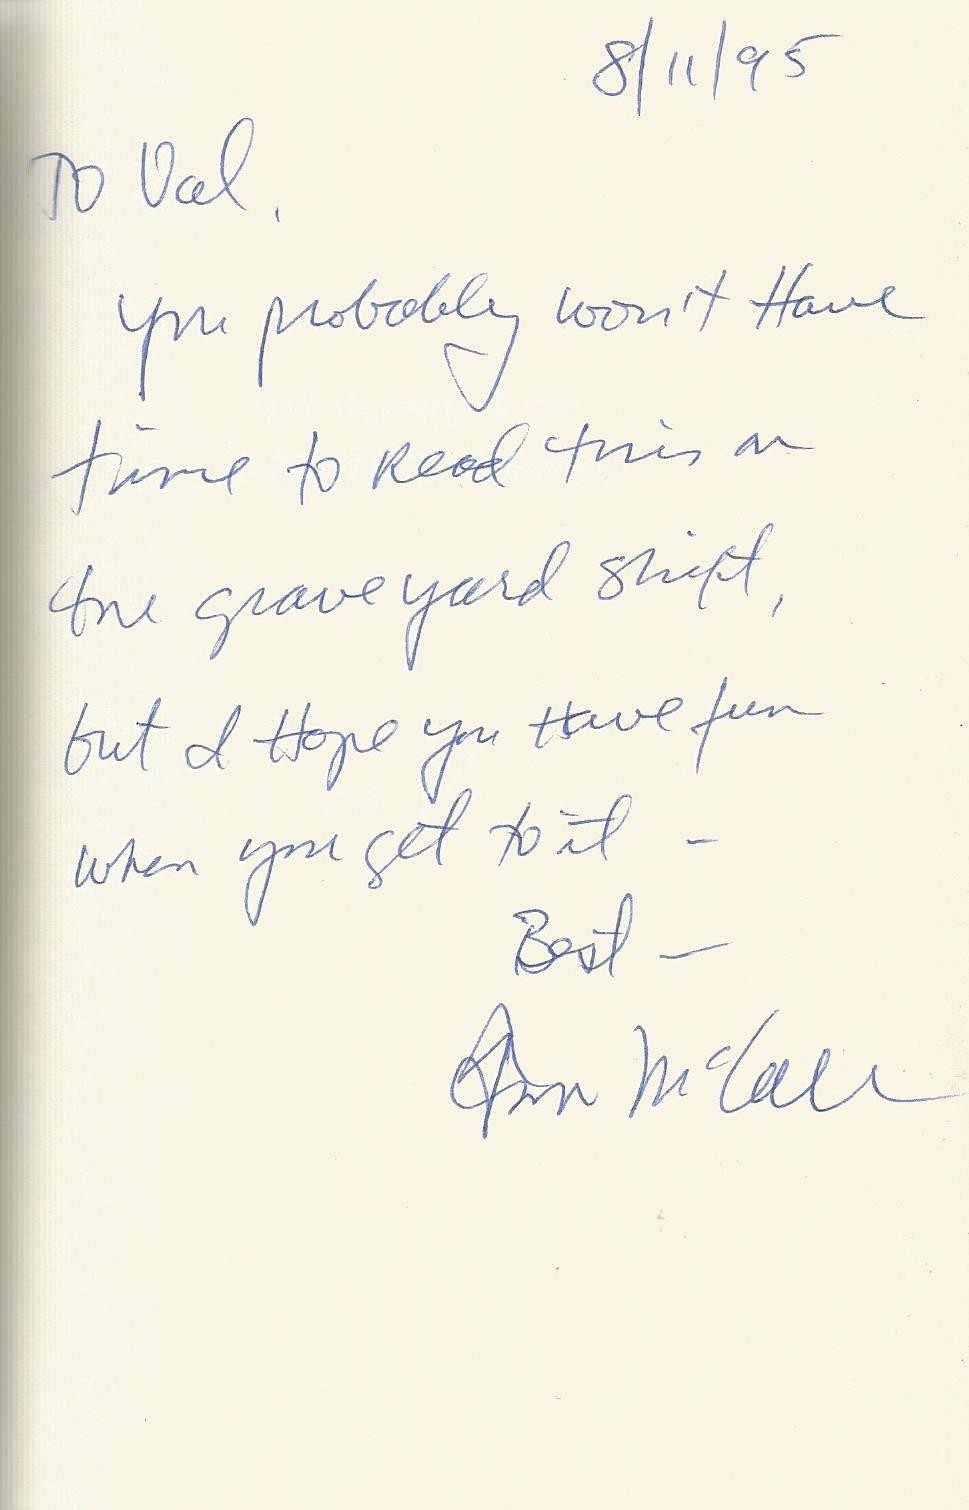 8/11/95
To Val,
you probably won't Have
time to Read this on
the graveyard shift,
but I Hope you Have fun
when you get to it -
Best -
Ann McCall